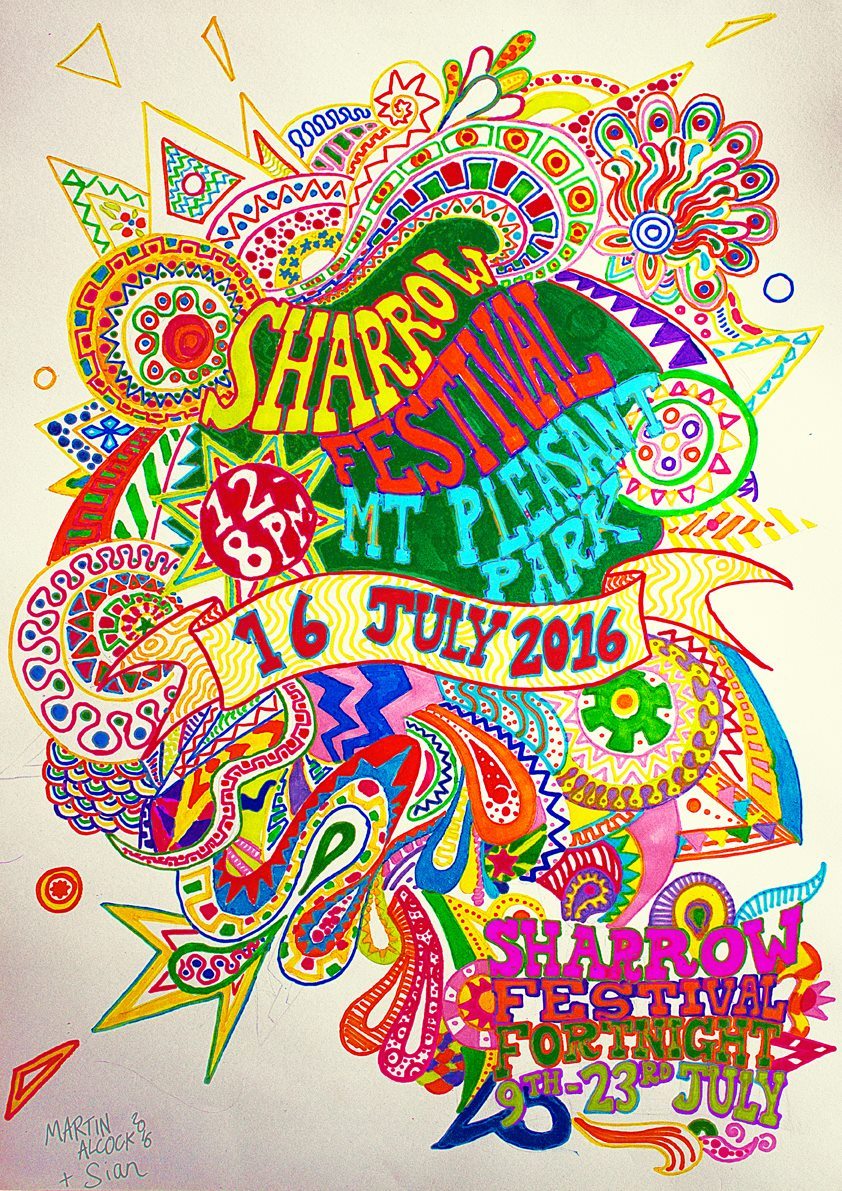 SHARROW
FESTIVAL
MT PLEASANT
PARK
12-
8PM
16 JULY 2016
SHARROW
FESTIVAL
FORTNIGHT
9TH-23RD JULY
MARTIN
ALCOCK 2016
+ Sian